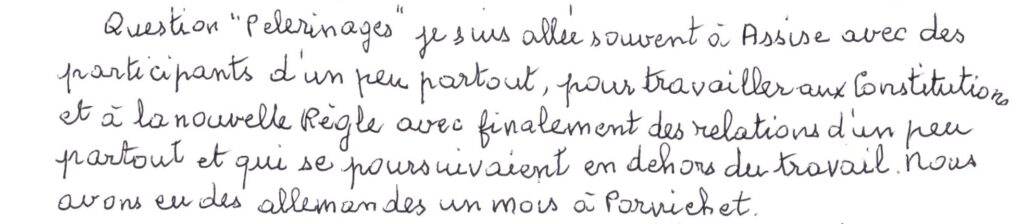 Question "Pelerinages" je suis allée souvent à Assise avec des
participants d'un peu partout, pour travailler aux Constitutions
et à la nouvelle Règle avec finalement des relations d'un peu
partout et qui se poursuivaient en dehors du travail. Nous
avons eu des allemandes un mois à Pornichet.